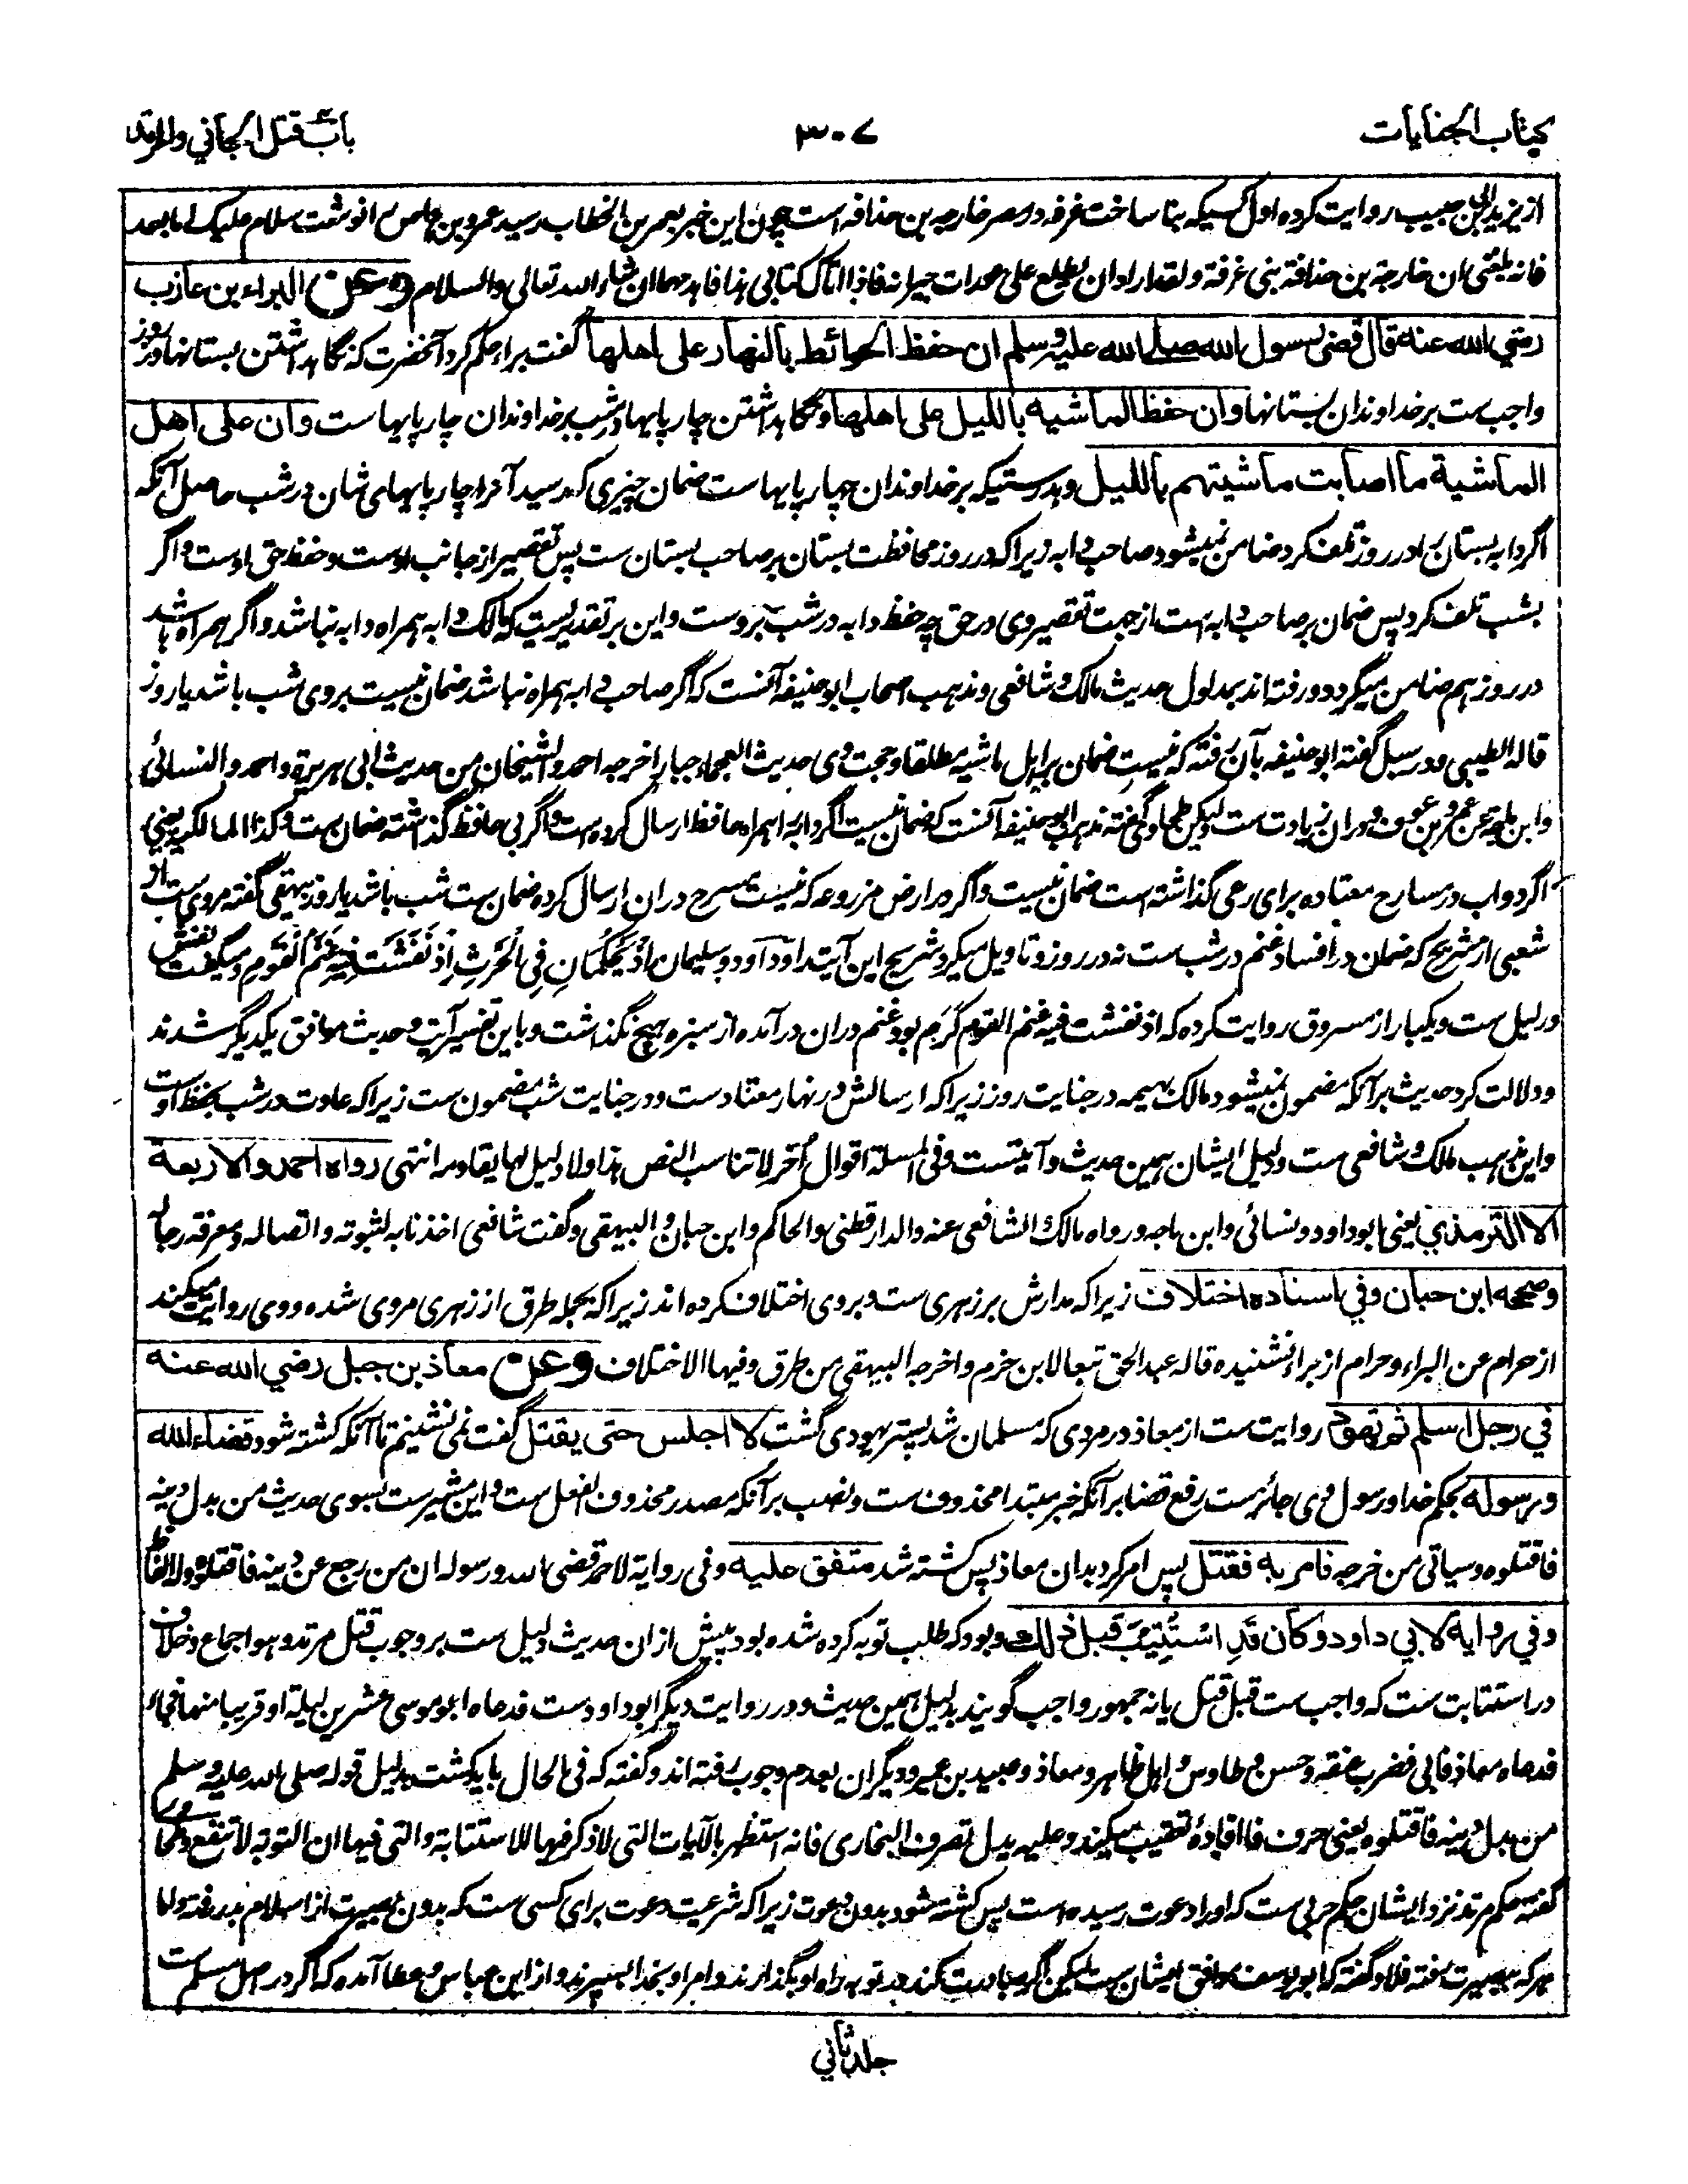 کتاب الجنایات
۳۰۷
باب قتل الجاني والمرتد
از یزید بن ابی حبیب روایت کرده اول کسیکه بنا ساخت غرفه در مصر خارجه بن حذافه است چون این خبر بعمر بن الخطاب رسید عمرو بن عاص را نوشت سلام علیک اما بعد
فانه بلغنی ان خارجة بن حذافة بنی غرفة ولقد اراد ان یطلع علی عورات جیرانه فاذا اتاک کتابی هذا فاهدمها ان شاء الله تعالی والسلام وعن البراء بن عازب
رضي الله عنه قال قضی رسول الله صلی الله علیه وسلم ان حفظ الحوائط بالنهار علی اهلها گفت براء حکم کرد آنحضرت که نگاهداشتن بستانها در روز
واجب ست بر خداوندان بستانها وان حفظ الماشیه باللیل علی اهلها و نگاهداشتن چارپایها در شب بر خداوندان چارپایها است وان علی اهل
الماشیة ما اصابت ماشیتهم باللیل و بدرستیکه بر خداوندان چهارپایها ست ضمان چیزی که رسید آنرا چارپایهای شان در شب حاصل آنکه
اگر دابه بستان را در روز تلف کرد ضامن نمیشود صاحب دابه زیرا که در روز محافظت بستان بر صاحب بستان ست پس تقصیر از جانب اوست و حفظ حق اوست و اگر
بشب تلف کرد پس ضمان بر صاحب دابه است از جهت تقصیر وی در حق چه حفظ دابه در شب بروست و این بر تقدیریست که مالک دابه همراه دابه نباشد و اگر همراه باشد
در روز هم ضامن میگردد و رفته اند بمدلول حدیث مالک و شافعی و مذهب اصحاب ابو حنیفه آنست که اگر صاحب دابه همراه نباشد ضمان نیست بروی شب باشد یا روز
قاله الطیبی و در سبل گفته ابو حنیفه بآن رفته که نیست ضمان بر اهل ماشیه مطلقا و حجت وی حدیث العجماء جبار اخرجه احمد والشیخان من حدیث ابی هریرة واحمد والنسائی
وابن ماجه عن عمرو بن عوف و دران زیادت ست لیکن طحاوی گفته مذهب ابو حنیفه آنست که ضمان نیست اگر دابه را همراه حافظ ارسال کرده است و اگر بی حافظ گذاشته ضمان ست وکذا المالکیه یعنی
اگر دواب در مسارح معتاده برای رعی گذاشته است ضمان نیست و اگر در ارض مزروعه که نیست مسرح دران ارسال کرده ضمان ست شب باشد یا روز بیهقی گفته مروی ست از
شعبی از شریح که ضمان در افساد غنم در شب ست نه در روز و تاویل میکرد شریح این آیت را وداود وسلیمان اذ یحکمان فی الحرث اذ نفشت فیه غنم القوم و میگفت نفش
در لیل ست و یکبار از مسروق روایت کرده که اذ نفشت فیه غنم القوم کرم بود غنم دران در آمده از سبزه هیچ نگذاشت و باین تفسیر آیت و حدیث موافق یکدیگر شدند
و دلالت کرد حدیث بر آنکه مضمون نمیشود مالک بهیمه در جنایت روز زیرا که ارسالش در نهار معتادست و در جنایت شب مضمون ست زیرا که عادت در شب بحفظ اوست
و این مذهب مالک و شافعی ست و دلیل ایشان همین حدیث و آیتست وفی المسئلة اقوال اخر لا تناسب النص هذا ولا دلیل لها یقاومه انتهی رواه احمد والاربعة
الا الترمذي یعنی ابو داود و نسائی و ابن ماجه ورواه مالک والشافعی عنه والدارقطنی والحاکم وابن حبان والبیهقی و گفت شافعی اخذنا به لثبوته واتصاله ومعرفة رجاله
وصححه ابن حبان وفي اسناده اختلاف زیرا که مدارش بر زهری ست و بروی اختلاف کرده اند زیرا که جمله طرق از زهری مروی شده و وی روایت میکند
از حرام عن البراء و حرام از براء نشنیده قاله عبد الحق تبعا لابن حزم واخرجه البیهقی من طرق وفیها الاختلاف وعن معاذ بن جبل رضي الله عنه
في رجل اسلم ثم تهود روایت ست از معاذ در مردی که مسلمان شد پستر یهودی گشت لا اجلس حتی یقتل گفت نمی نشینم تا آنکه کشته شود قضاء الله
ورسوله بحکم خدا و رسول وی جائزست رفع قضا بر آنکه خبر مبتدا محذوف ست و نصب بر آنکه مصدر محذوف الفعل ست و این مشیرست بسوی حدیث من بدل دینه
فاقتلوه وسیاتی من خرجه فامر به فقتل پس امر کرد بدان معاذ پس کشته شد متفق علیه وفی روایة لاحمد قضی الله ورسوله ان من رجع عن دینه فاقتلوه
وفي روایة لابي داود وکان قد استتیب قبل ذلك و بود که طلب توبه کرده شده بود پیش ازان حدیث دلیل ست بر وجوب قتل مرتد وهو اجماع و خلاف
در استتابت ست که واجب ست قبل قتل یا نه جمهور واجب گویند بدلیل همین حدیث و در روایت دیگر ابو داود ست فدعاه ابو موسی عشرین لیلة او قریبا منها فجاء
فدعاه معاذ فابی فضرب عنقه و حسن و طاوس و اهل ظاهر و معاذ و عبید بن عمیر و دیگران بعدم وجوب رفته اند و گفته که فی الحال باید کشت بدلیل قوله صلی الله علیه وسلم
من بدل دینه فاقتلوه یعنی حرف فا افادهٔ تعقیب میکند وعلیه یدل تصرف البخاری فانه استظهر بالآیات التی لا ذکر فیها للاستتابة والتی فیها ان التوبة لا تنفع
گفته حکم مرتد نزد ایشان حکم حربی ست که او را دعوت رسیده است پس کشته شود بدون دعوت زیرا که شرعیت دعوت برای کسی ست که بدون بصیرت از اسلام بدر رفته واما
هر که ببصیرت رفته فلا و گفته که ابو یوسف موافق ایشان ست لیکن اگر مبادرت کند بتوبه راه او بگذارند و امر او بخدا بسپرند و از ابن عباس و عطا آمده که اگر در اصل مسلم ست
جلد ثاني